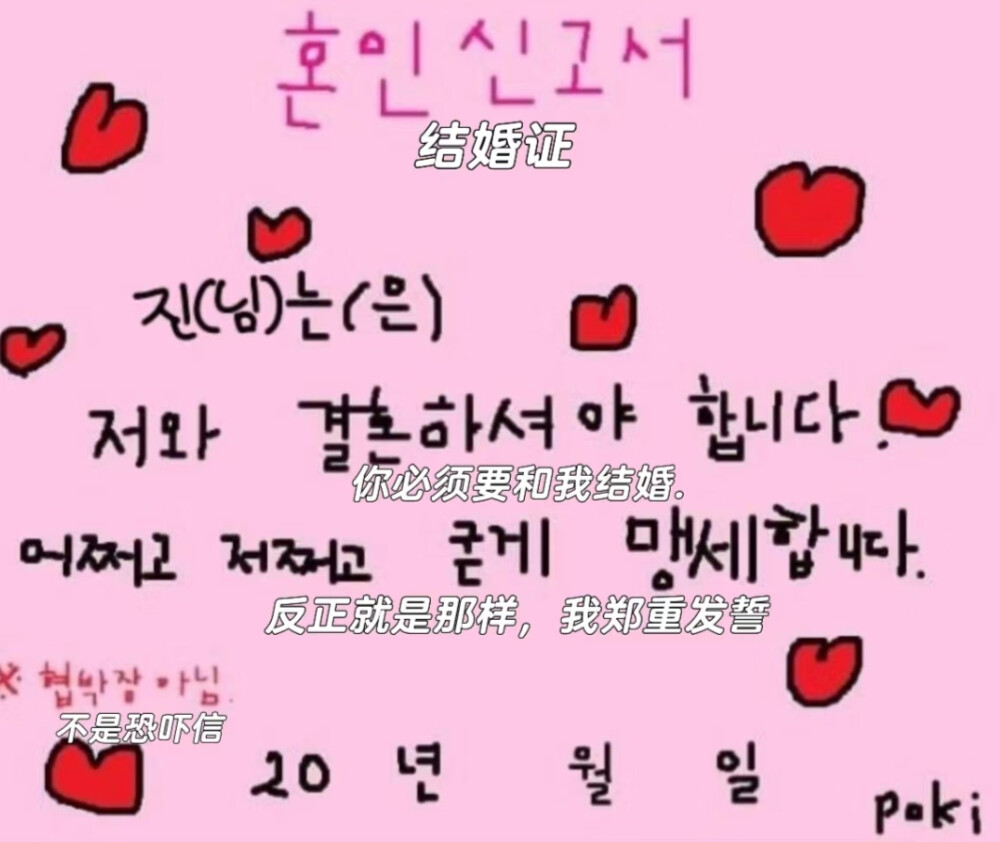 혼인신고서
结婚证
진(님)는(은)
저와 결혼하셔야 합니다.
你必须要和我结婚.
어쩌고 저쩌고 굳게 맹세합니다.
反正就是那样，我郑重发誓
※ 협박장 아님.
不是恐吓信
20 년 월 일
poki